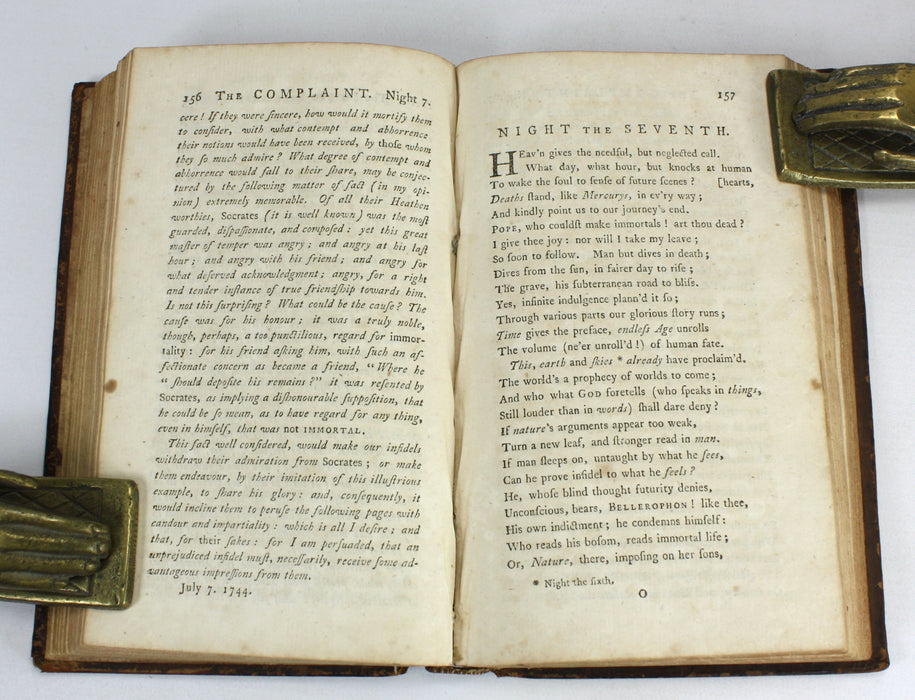 156 THE COMPLAINT. Night 7.
cere! If they were ſincere, how would it mortify them
to conſider, with what contempt and abhorrence
their notions would have been received, by thoſe whom
they ſo much admire? What degree of contempt and
abhorrence would fall to their ſhare, may be conjec-
tured by the following matter of fact (in my opi-
nion) extremely memorable. Of all their Heathen
worthies, Socrates (it is well known) was the moſt
guarded, diſpaſſionate, and compoſed: yet this great
maſter of temper was angry; and angry at his laſt
hour; and angry with his friend; and angry for
what deſerved acknowledgment; angry, for a right
and tender inſtance of true friendſhip towards him.
Is not this ſurpriſing? What could be the cauſe? The
cauſe was for his honour; it was a truly noble,
though, perhaps, a too punctilious, regard for immor-
tality: for his friend aſking him, with ſuch an af-
fectionate concern as became a friend, "Where he
"ſhould depoſite his remains?" it was reſented by
Socrates, as implying a diſhonourable ſuppoſition, that
he could be ſo mean, as to have regard for any thing,
even in himſelf, that was not IMMORTAL.
This fact well conſidered, would make our infidels
withdraw their admiration from Socrates; or make
them endeavour, by their imitation of this illuſtrious
example, to ſhare his glory: and, conſequently, it
would incline them to peruſe the following pages with
candour and impartiality: which is all I deſire; and
that, for their ſakes: for I am perſuaded, that an
unprejudiced infidel muſt, neceſſarily, receive ſome ad-
vantageous impreſſions from them.
July 7. 1744.
157
NIGHT THE SEVENTH.
HEav'n gives the needful, but neglected call.
What day, what hour, but knocks at human
To wake the ſoul to ſenſe of future ſcenes? [hearts,
Deaths ſtand, like Mercurys, in ev'ry way;
And kindly point us to our journey's end.
POPE, who couldſt make immortals! art thou dead?
I give thee joy: nor will I take my leave;
So ſoon to follow. Man but dives in death;
Dives from the ſun, in fairer day to riſe;
The grave, his ſubterranean road to bliſs.
Yes, infinite indulgence plann'd it ſo;
Through various parts our glorious ſtory runs;
Time gives the preface, endleſs Age unrolls
The volume (ne'er unroll'd!) of human fate.
This, earth and ſkies * already have proclaim'd.
The world's a prophecy of worlds to come;
And who what GOD foretells (who ſpeaks in things,
Still louder than in words) ſhall dare deny?
If nature's arguments appear too weak,
Turn a new leaf, and ſtronger read in man.
If man ſleeps on, untaught by what he ſees,
Can he prove infidel to what he feels?
He, whoſe blind thought futurity denies,
Unconſcious, bears, BELLEROPHON! like thee,
His own indictment; he condemns himſelf:
Who reads his boſom, reads immortal life;
Or, Nature, there, impoſing on her ſons,
* Night the ſixth.
O